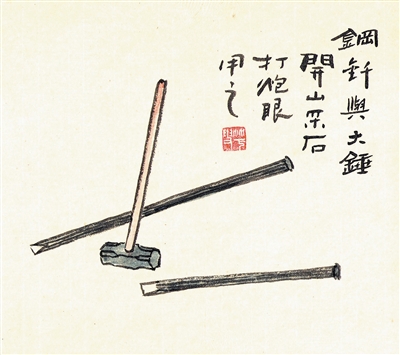 鋼釺與大錘
開山采石
打炮眼
用之